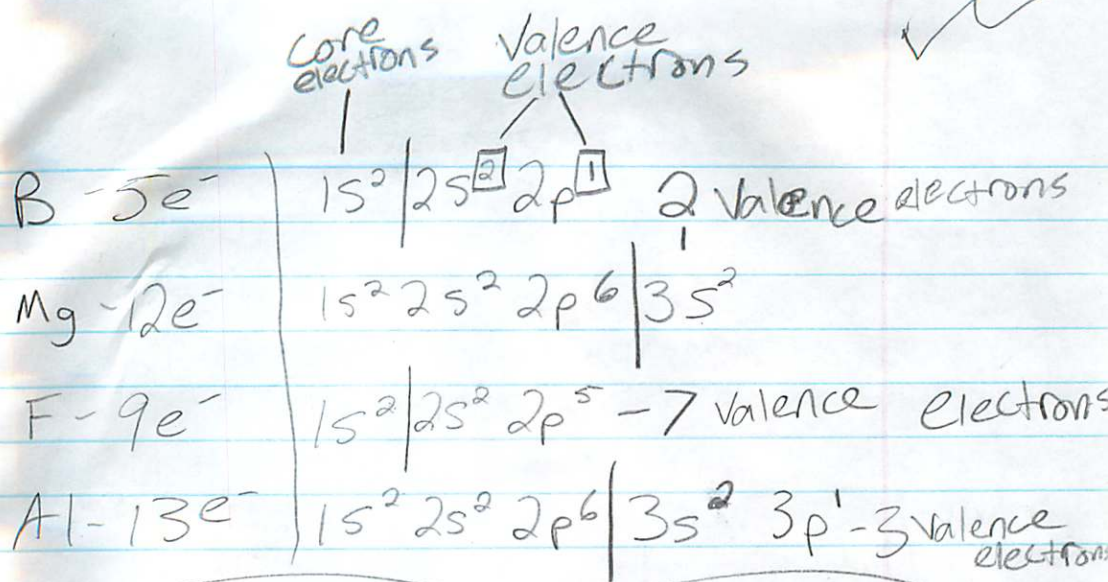 core electrons
Valence electrons
B - 5e⁻ 1s² | 2s² 2p¹
2 Valence electrons
Mg - 12e⁻ 1s² 2s² 2p⁶ | 3s²
F - 9e⁻ 1s² | 2s² 2p⁵ - 7 valence electrons
Al - 13e⁻ 1s² 2s² 2p⁶ | 3s² 3p¹ - 3 valence electrons